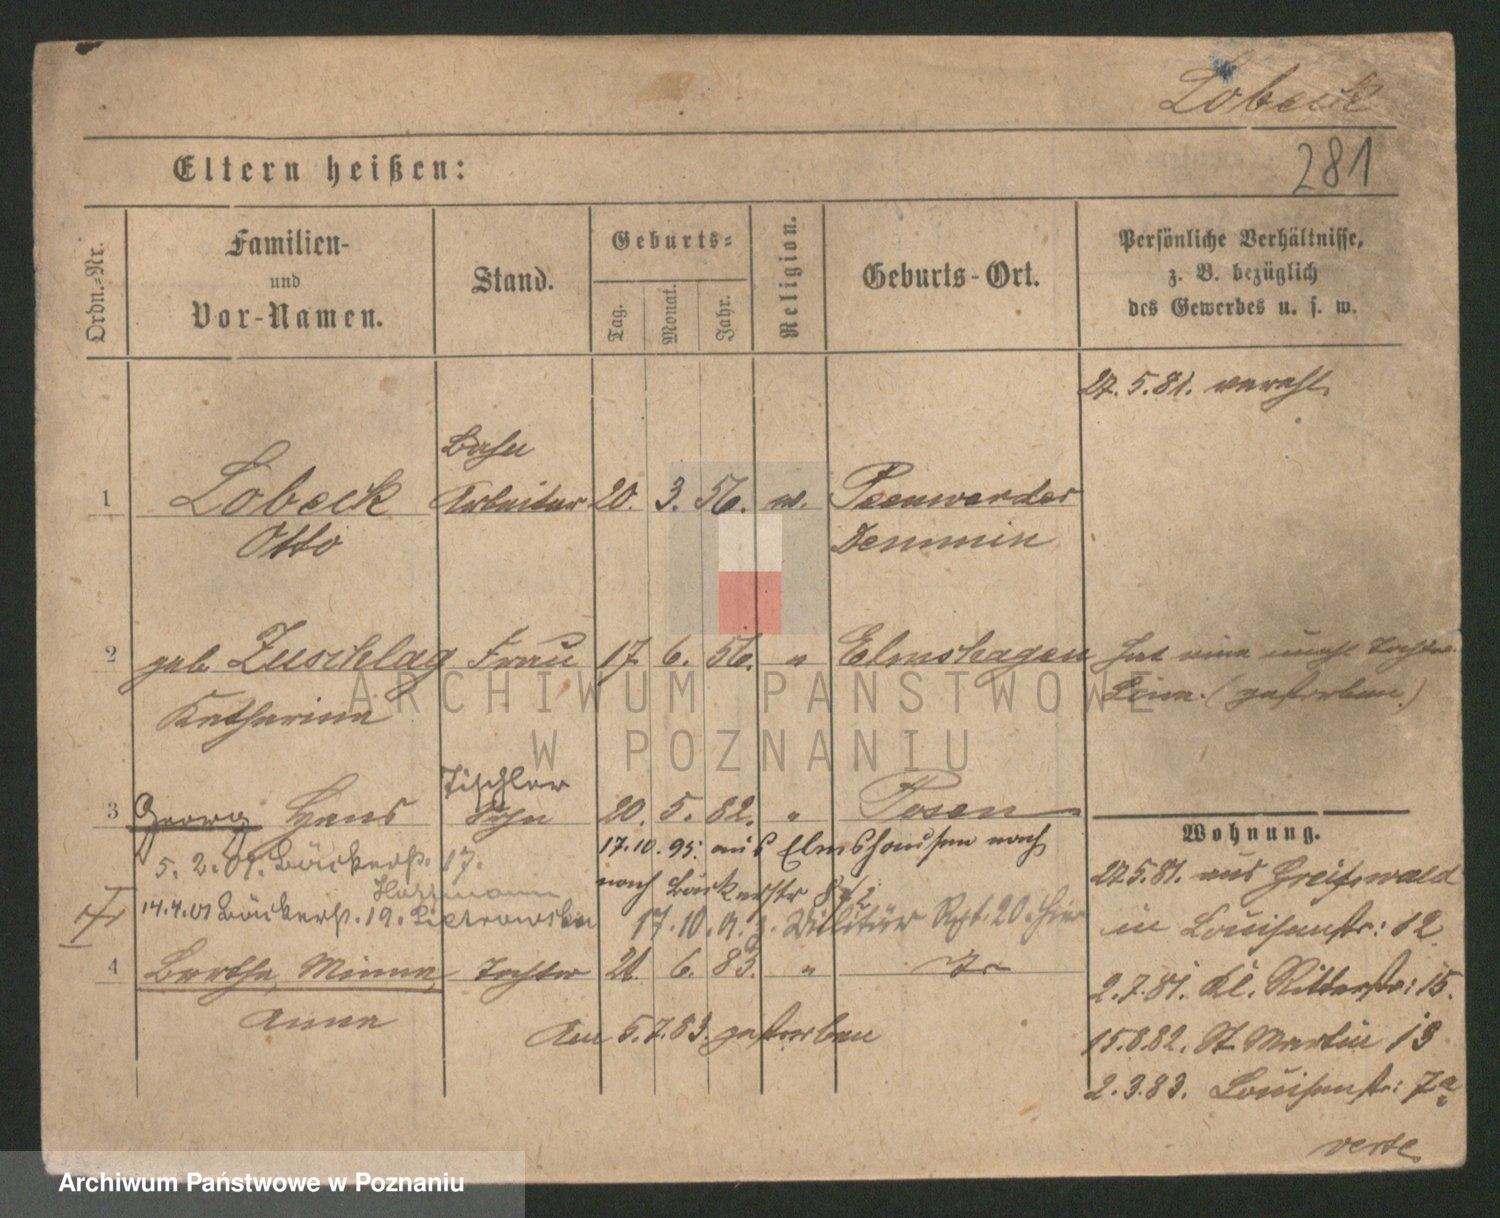 Lobeck
281
Eltern heißen:
Ordn.-Nr.
Familien-
und
Vor-Namen.
Stand.
Geburts-
Tag.
Monat.
Jahr.
Religion.
Geburts-Ort.
Persönliche Verhältnisse,
z. B. bezüglich
des Gewerbes u. s. w.
27.5.81. verehl.
1 Lobeck Bahn Arbeiter 20. 3. 56. ev. Peenwerder
Otto Demmin
2 geb. Zuschlag Frau 17. 6. 56. " Elmshagen hat eine unehl Tochter
Katharina Lina. (gestorben.)
ARCHIWUM PAŃSTWOWE
W POZNANIU
Tischler
3 Georg Hans Sohn 20. 5. 82. " Posen
17.10.95. aus Elmshausen nach
5. 2. 01. Bäckerstr. 17.
Hoffmann
nach Bäckerstr
14.4.01 Bäckerst. 19.
17.10.
Militär Rgt. 20. hier
4 Berthe, Minna, Tochter 21. 6. 83. "
Anna
Am 5.7.83. gestorben
Wohnung.
27.5.81. aus Greifswald
in Louisenstr: 12
2.7.81. Kl. Ritterstr: 15.
15.8.82. St Martin 13
2.3.83. Louisenstr: 7a
verte
Archiwum Państwowe w Poznaniu